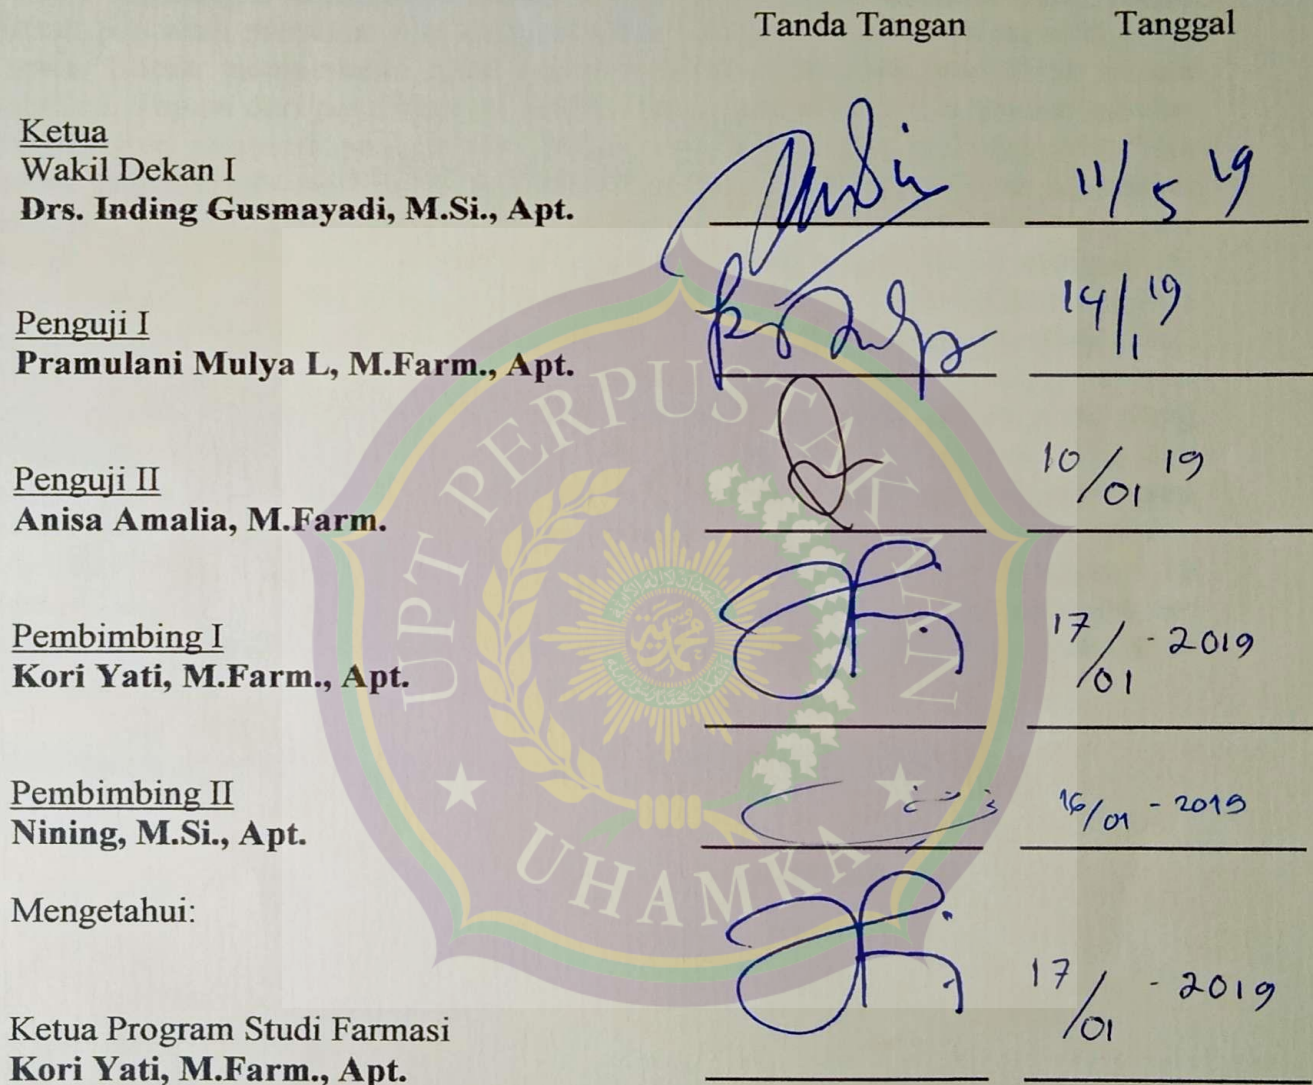 Tanda Tangan Tanggal
Ketua
Wakil Dekan I
Drs. Inding Gusmayadi, M.Si., Apt. 11/5 19
Penguji I
Pramulani Mulya L, M.Farm., Apt. 14/1 19
Penguji II
Anisa Amalia, M.Farm. 10/01 19
Pembimbing I
Kori Yati, M.Farm., Apt. 17/01 - 2019
Pembimbing II
Nining, M.Si., Apt. 16/01 - 2019
Mengetahui:
Ketua Program Studi Farmasi
Kori Yati, M.Farm., Apt. 17/01 - 2019
UPT PERPUSTAKAAN
UHAMKA